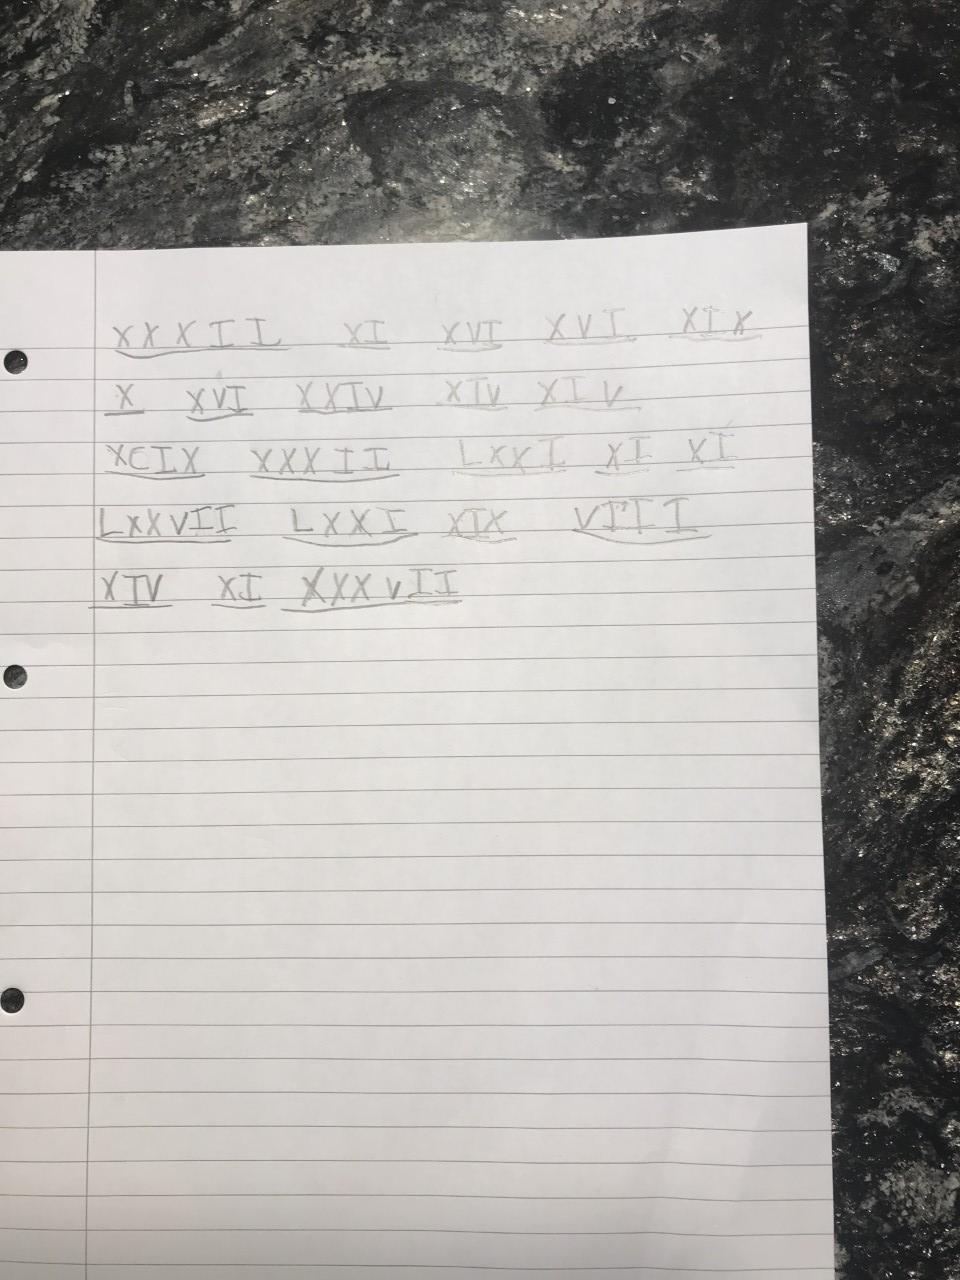 XXXII XI XVI XVI XIX
X XVI XXIV XIV XIV
XCIX XXXII LXXI XI XI
LXXVII LXXI XIX VIII
XIV XI XXXVII